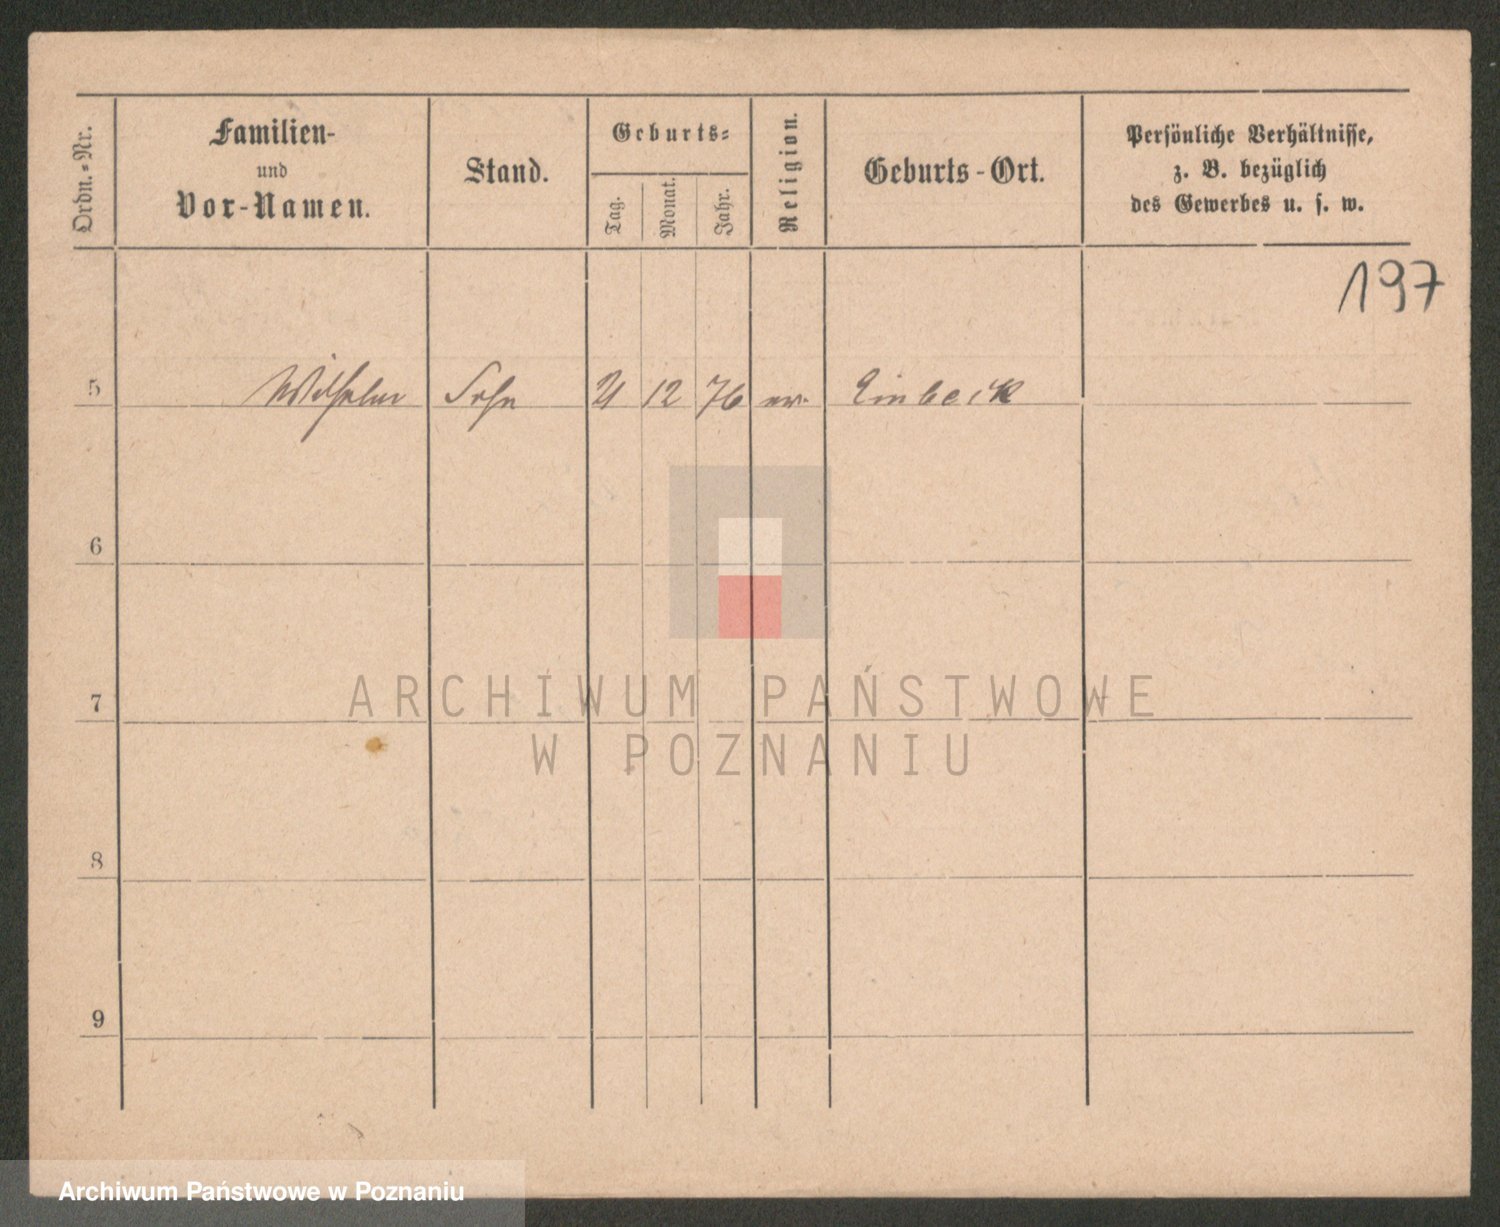 Ordn.-Nr.
Familien-
und
Vor-Namen.
Stand.
Geburts-
Tag.
Monat.
Jahr.
Religion.
Geburts-Ort.
Persönliche Verhältnisse,
z. B. bezüglich
des Gewerbes u. s. w.
197
5 Wilhelm Sohn 12 76 ev. Einbeck
6
7
8
9
ARCHIWUM PAŃSTWOWE
W POZNANIU
Archiwum Państwowe w Poznaniu